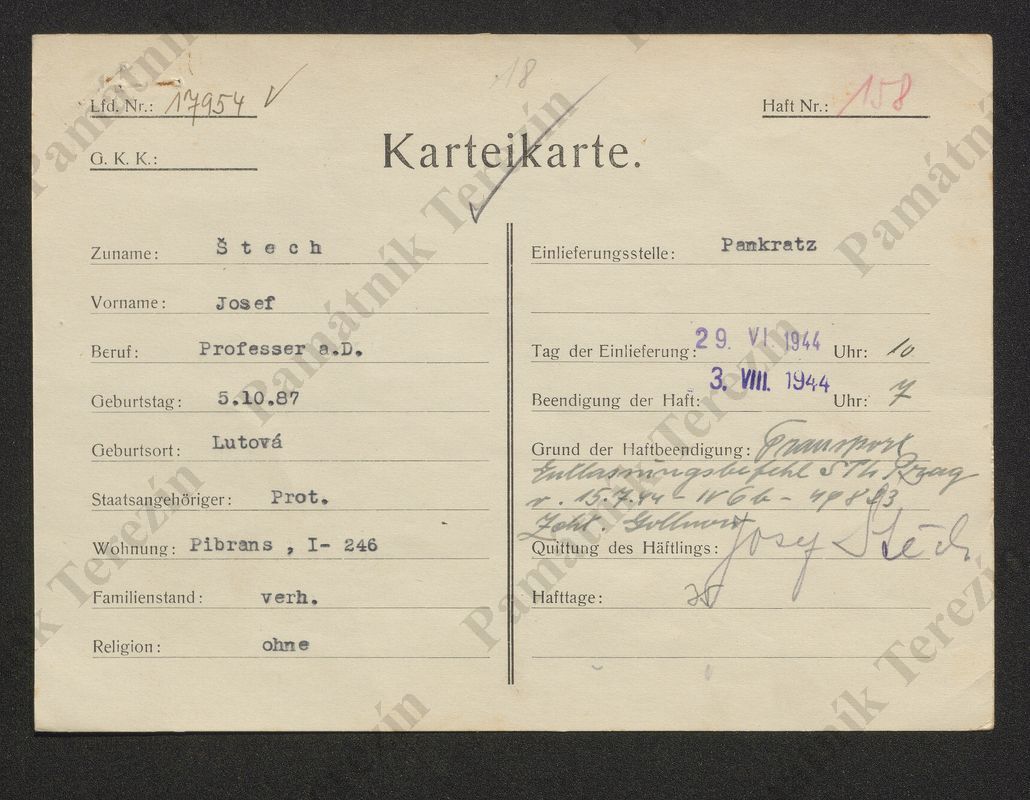 18
Lfd. Nr.: 17954
Haft Nr.: 158
G. K. K.:
Karteikarte.
Zuname: Štech
Vorname: Josef
Beruf: Professer a.D.
Geburtstag: 5.10.87
Geburtsort: Lutová
Staatsangehöriger: Prot.
Wohnung: Pibrans , I- 246
Familienstand: verh.
Religion: ohne
Einlieferungsstelle: Pankratz
Tag der Einlieferung: 29. VI. 1944 Uhr: 10
Beendigung der Haft: 3. VIII. 1944 Uhr: 7
Grund der Haftbeendigung: Transport
Entlassungsbefehl STL Prag
v. 15.7.44 - IV 6 b -
Quittung des Häftlings: Josef Štech
Hafttage: 35
Památník Terezín
Památník Terezín
Památník Terezín
Památník Terezín
Památník Terezín